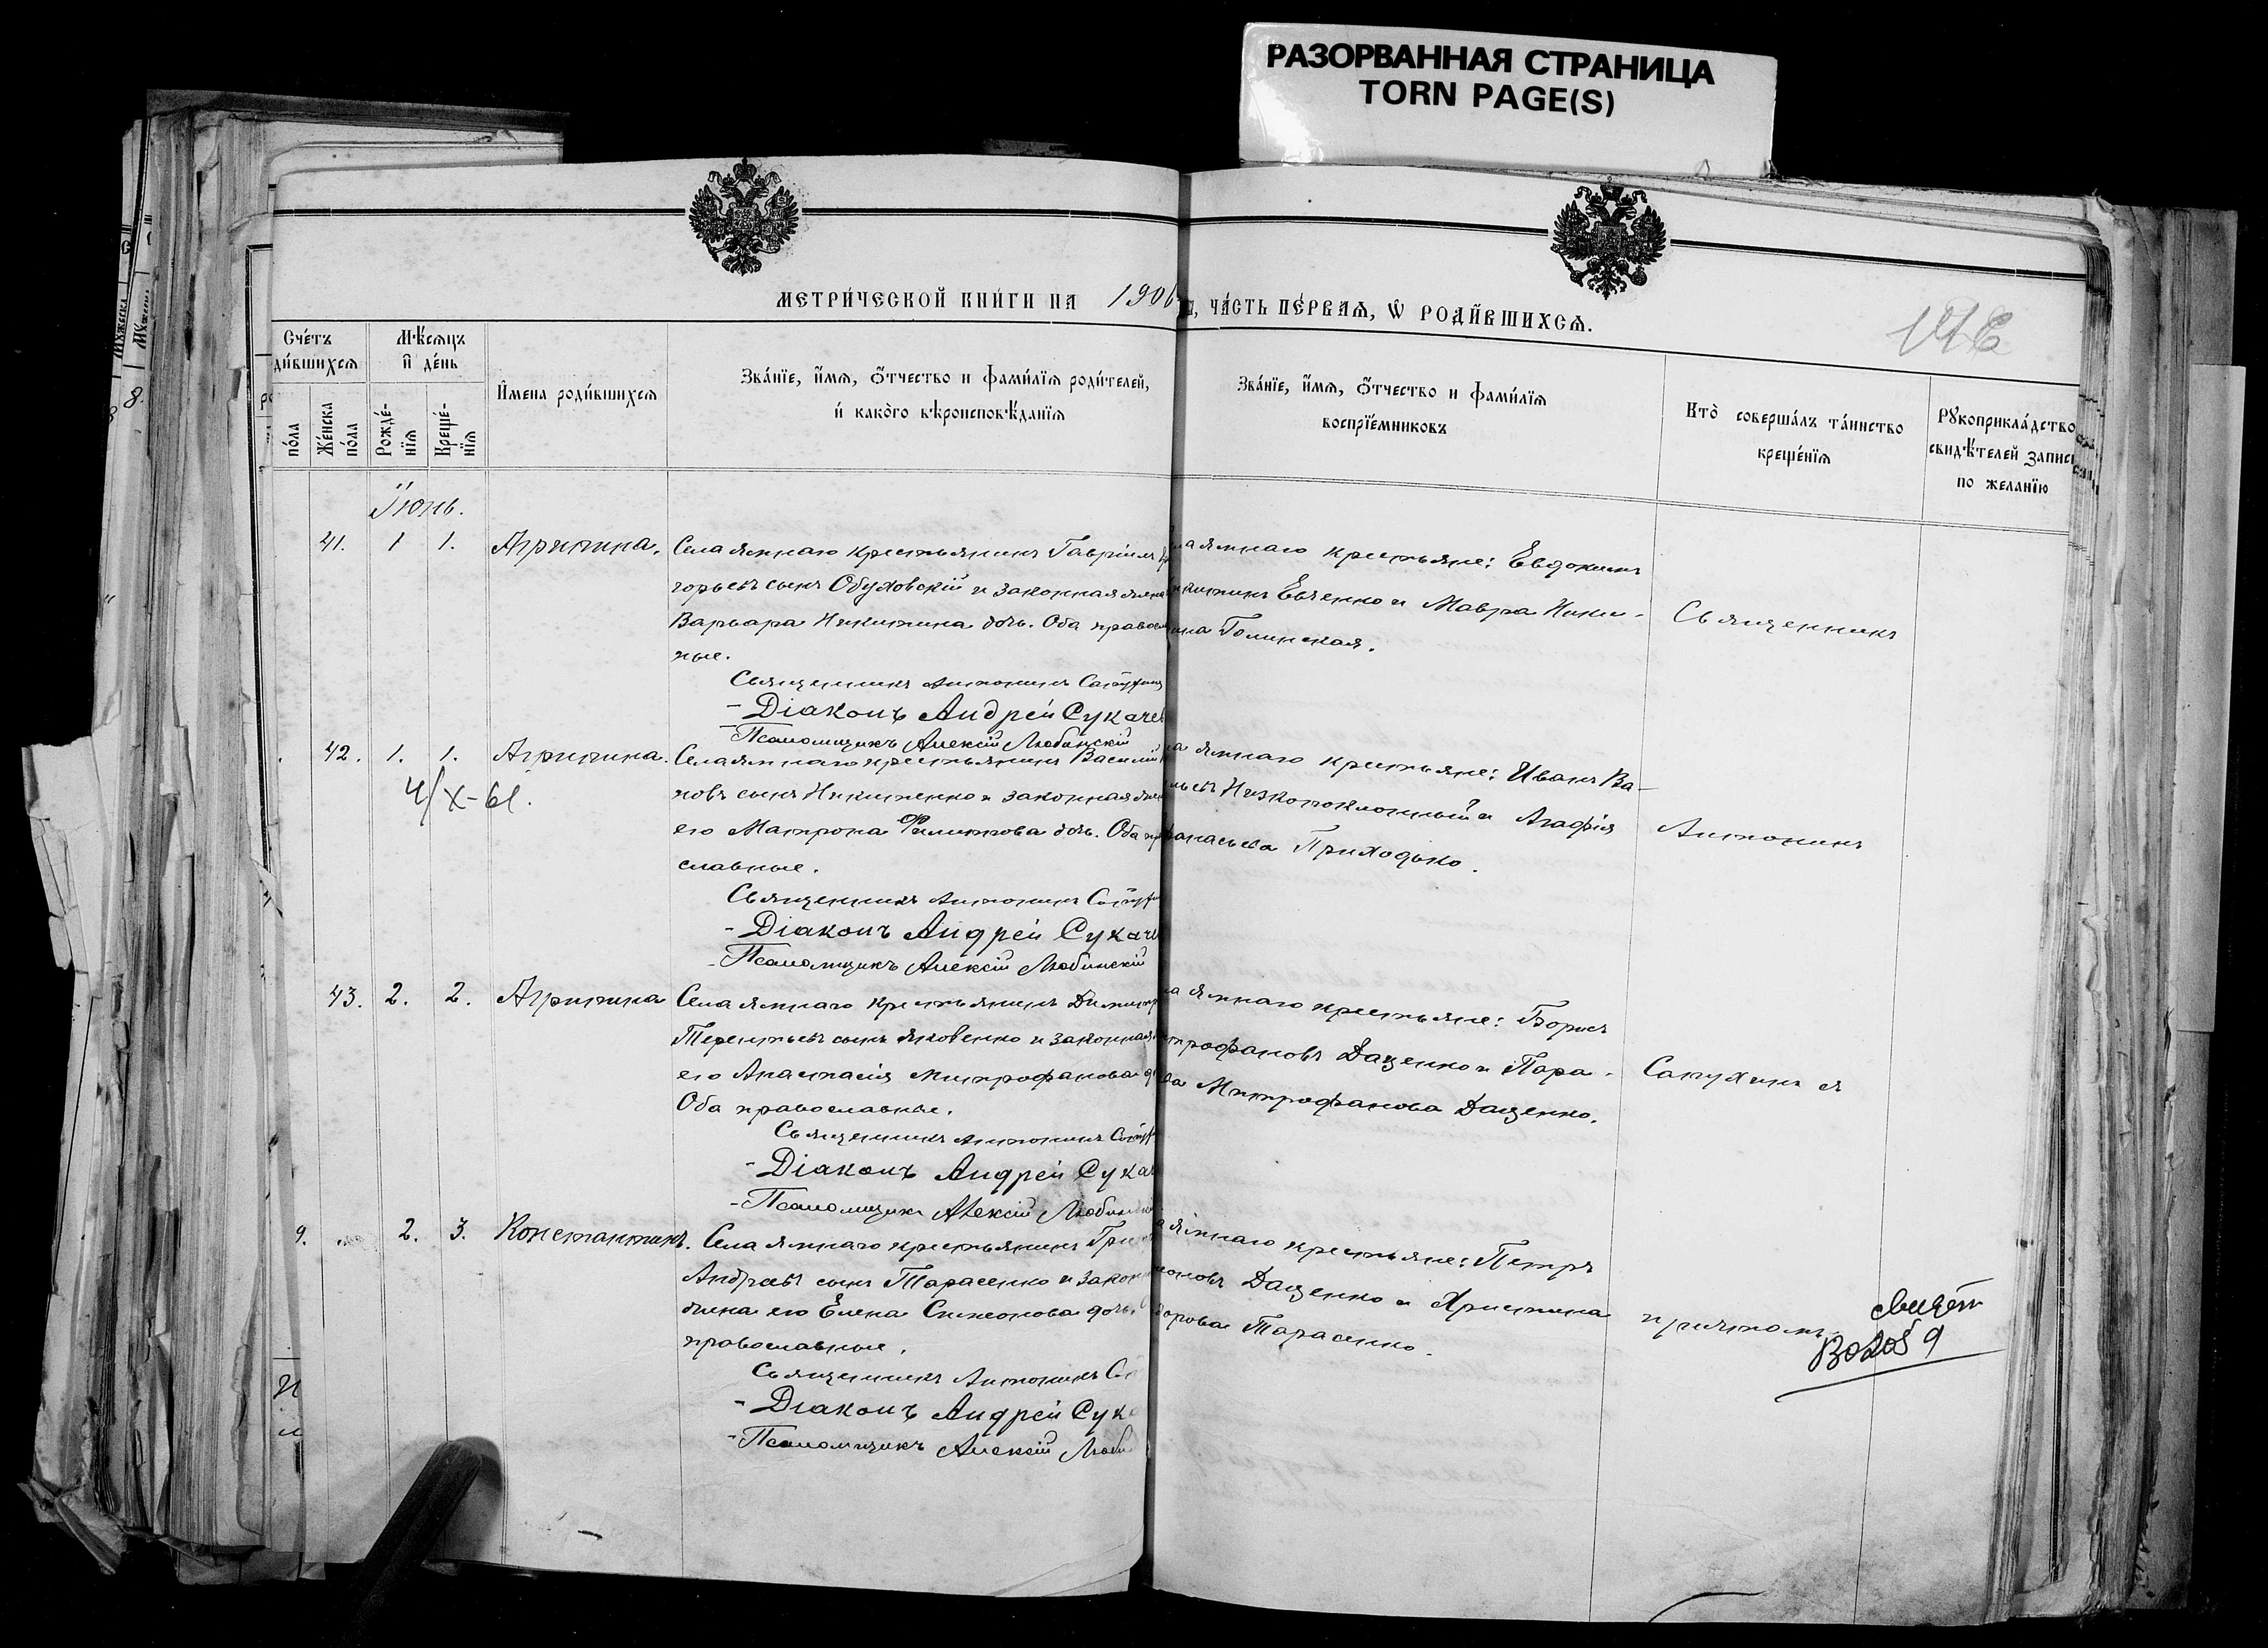 РАЗОРВАННАЯ СТРАНИЦА
TORN PAGE(S)
МЕТРИЧЕСКОЙ КНИГИ НА 1906
ЧАСТЬ ПЕРВАЯ, Ѡ РОДИВШИХСЯ.
Счетъ
дившихся
Мѣсяцъ
и день
пола
Женска
пола
Рожде-
нія
Креще-
нія
Имена родившихся
Званіе, имя, отчество и фамилія родителей,
и какого вѣроисповѣданія
Званіе, имя, отчество и фамилія
воспріемниковъ
Кто совершалъ таинство
крещенія
Рукоприкладство
свидѣтелей записи
по желанію
Іюнь.
41. 1 1. Агрипина.
Села Ямнаго крестьянинъ Гавріилъ
горьевъ сынъ Обуховскій и законная жена
Варвара Никитина дочь. Оба правосл
ные.
Священникъ Антонинъ
Діаконъ Андрей Сукачев
Псаломщикъ Алексій Любинскій
Ямнаго крестьяне: Евдокимъ
Евченко и Мавра Ники-
Голинская.
Священникъ
42. 1. 1. Агрипина.
4/X-61.
Села Ямнаго крестьянинъ Василій
новъ сынъ Никитенко и законная жен
его Матрона Филиппова дочь. Оба пра
славные.
Священникъ Антонинъ
Діаконъ Андрей Сукаче
Псаломщикъ Алексій Любинскій
Ямнаго крестьяне: Иванъ Ва-
льевъ Низкопоклонный и Агафія
фанасьева Приходько.
Антонинъ
43. 2. 2. Агрипина
Села Ямнаго крестьянинъ Димитр
Терентьевъ сынъ Яковенко и законная
его Анастасія Митрофанова д
Оба православные.
Священникъ Антонинъ
Діаконъ Андрей Сукач
Псаломщикъ Алексій Любинскій
Ямнаго крестьяне: Борисъ
трофановъ Даценко и Пара-
ва Митрофанова Даценко.
Сапухинъ съ
9. 2. 3. Константинъ.
Села Ямнаго крестьянинъ Гри
Андреевъ сынъ Тарасенко и закон
жена его Елена Симеонова дочь.
православные.
Священникъ Антонинъ
Діаконъ Андрей Сук
Псаломщикъ Алексій Люби
Ямнаго крестьяне: Петръ
еоновъ Даценко и Христина
дорова Тарасенко.
причтомъ.